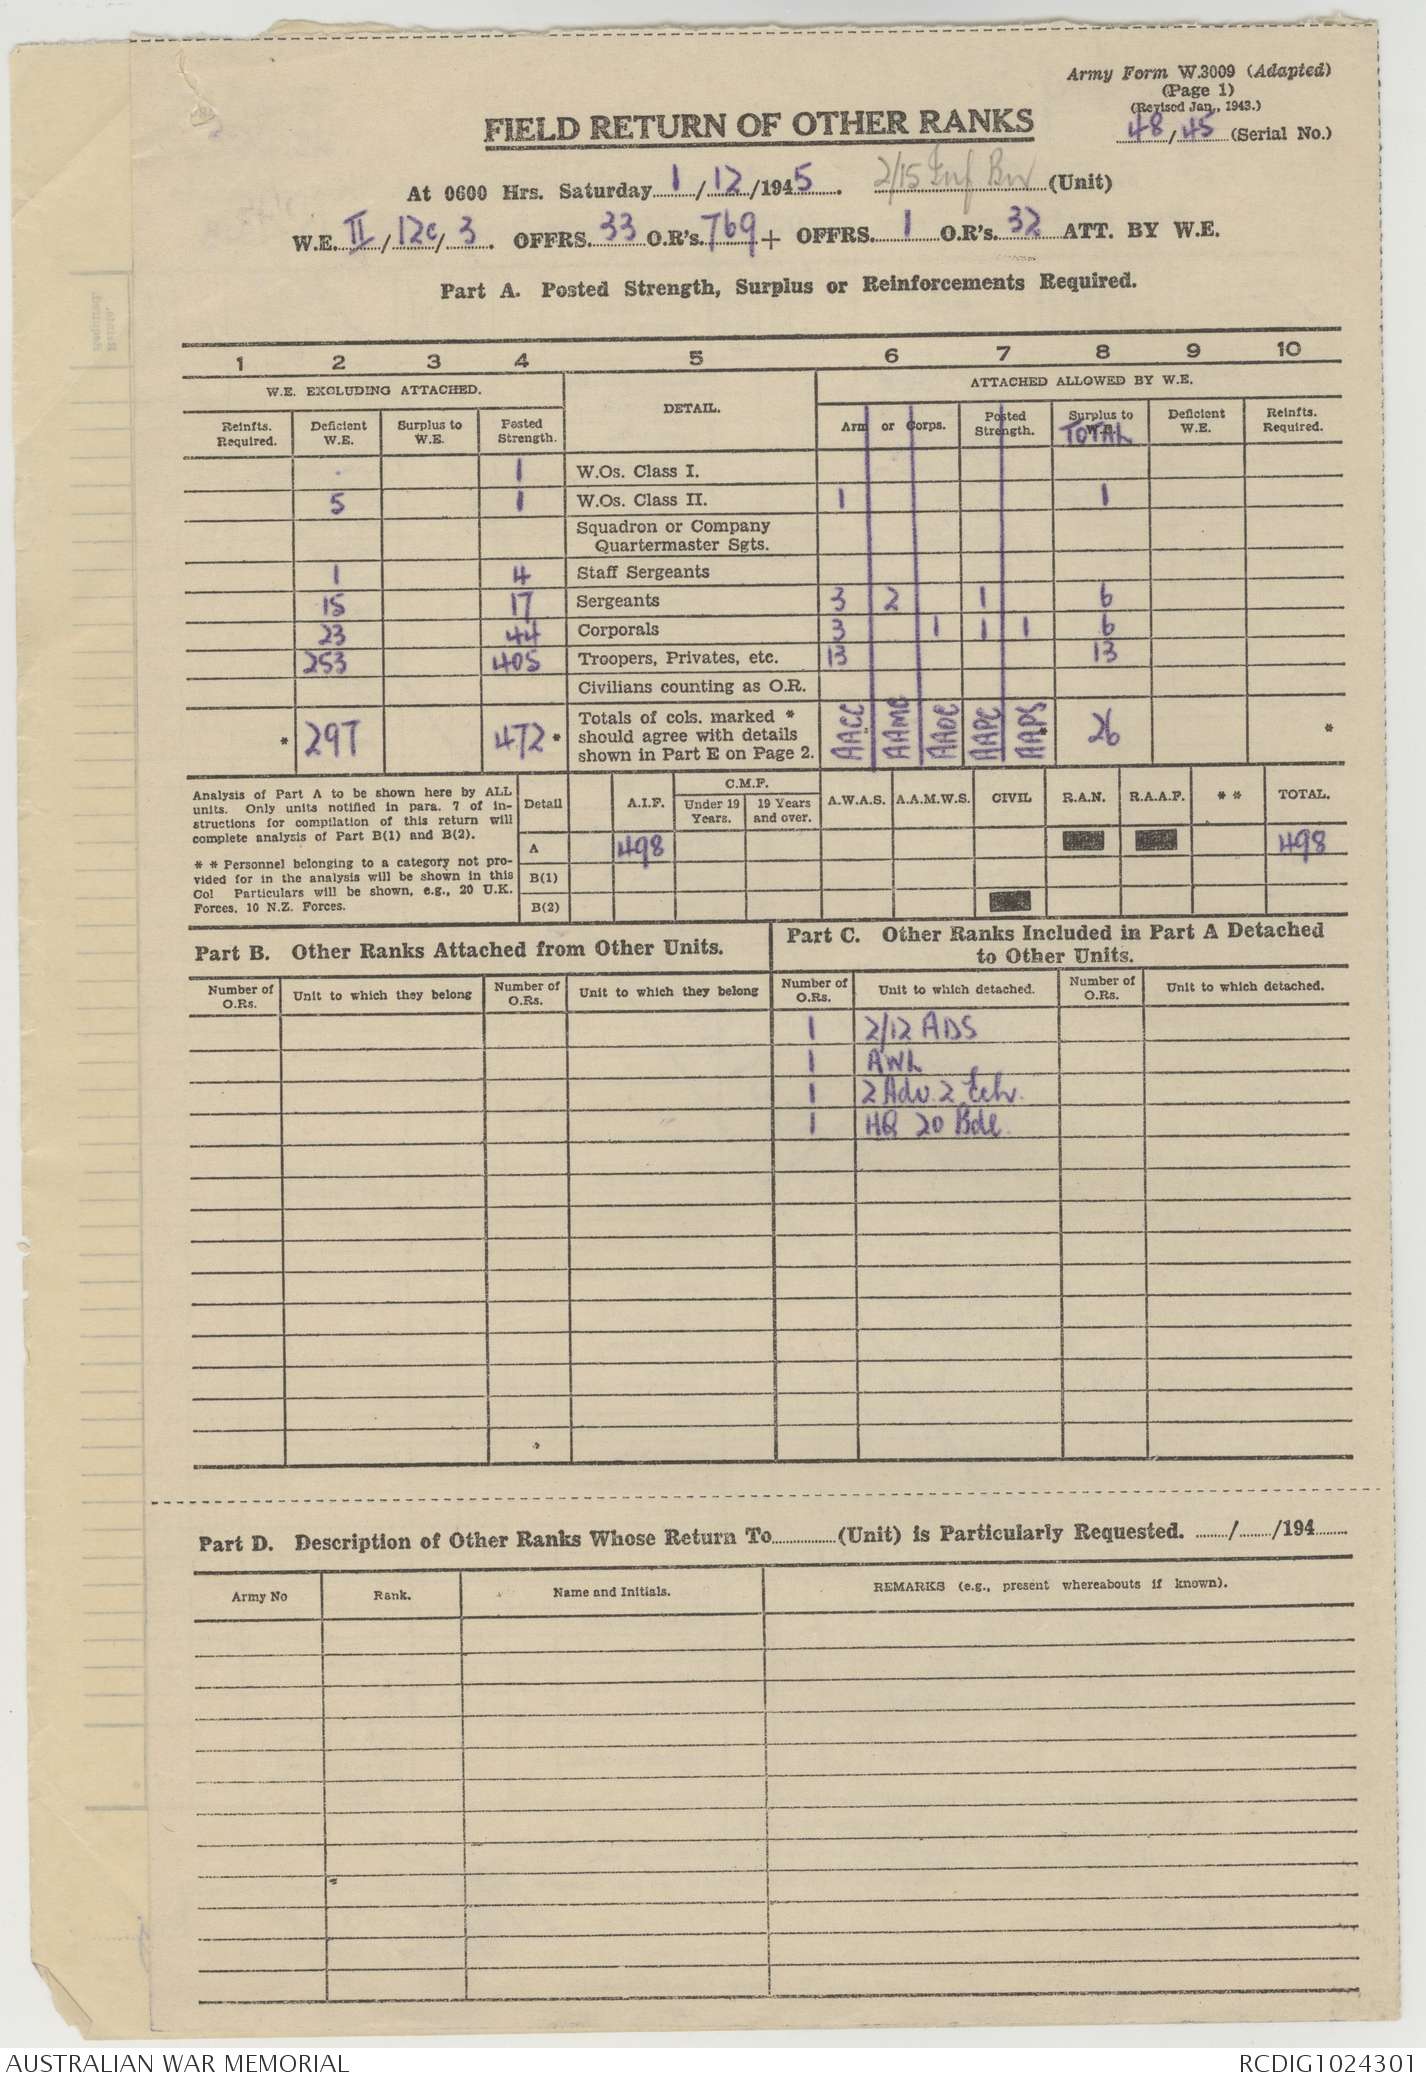 Army Form W.3009 (Adapted)
(Page 1)
(Revised Jan., 1943.)
48/45 (Serial No.)
FIELD RETURN OF OTHER RANKS
At 0600 Hrs. Saturday 1/12/1945. 2/15 Inf Bn (Unit)
W.E. II/12c/3. OFFRS. 33 O.R's. 769 + OFFRS. 1 O.R's. 32 ATT. BY W.E.
Part A. Posted Strength, Surplus or Reinforcements Required.
1 2 3 4 5 6 7 8 9 10
W.E. EXCLUDING ATTACHED. DETAIL. ATTACHED ALLOWED BY W.E.
Reinfts. Required. Deficient W.E. Surplus to W.E. Posted Strength. Arm or Corps. Posted Strength. Surplus to W.E. TOTAL Deficient W.E. Reinfts. Required.
1 W.Os. Class I.
5 1 W.Os. Class II. 1 1
Squadron or Company
Quartermaster Sgts.
1 4 Staff Sergeants
15 17 Sergeants 3 2 1 6
23 44 Corporals 3 1 1 1 6
253 405 Troopers, Privates, etc. 13 13
Civilians counting as O.R.
* 297 472 * Totals of cols. marked * should agree with details shown in Part E on Page 2. AACC AAMC AAOC AAPC AAPS * 26 *
Analysis of Part A to be shown here by ALL
units. Only units notified in para. 7 of in-
structions for compilation of this return will
complete analysis of Part B(1) and B(2).
* * Personnel belonging to a category not pro-
vided for in the analysis will be shown in this
Col Particulars will be shown, e.g., 20 U.K.
Forces, 10 N.Z. Forces.
Detail A.I.F. C.M.F. Under 19 Years. 19 Years and over. A.W.A.S. A.A.M.W.S. CIVIL R.A.N. R.A.A.F. * * TOTAL.
A 498 498
B(1)
B(2)
Part B. Other Ranks Attached from Other Units.
Part C. Other Ranks Included in Part A Detached
to Other Units.
Number of O.Rs. Unit to which they belong Number of O.Rs. Unit to which they belong Number of O.Rs. Unit to which detached. Number of O.Rs. Unit to which detached.
1 2/12 ADS
1 AWL
1 2 Adv. 2 Ech.
1 HQ 20 Bde.
Part D. Description of Other Ranks Whose Return To (Unit) is Particularly Requested. / /194
Army No Rank. Name and Initials. REMARKS (e.g., present whereabouts if known).
AUSTRALIAN WAR MEMORIAL RCDIG1024301